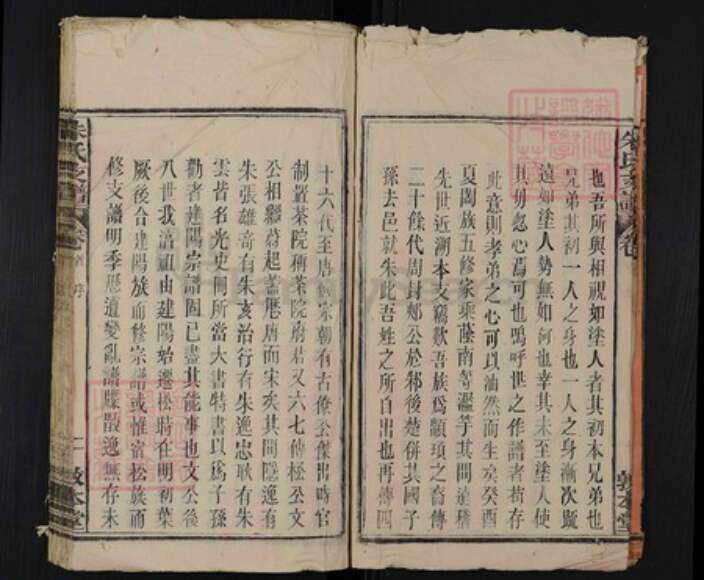 朱氏支譜
敦本堂
也吾所與相視如塗人者其初本兄弟也
兄弟其初一人之身也一人之身漸次疏
遠如塗人勢無如何也幸其未至塗人使
其勿忽心焉可也嗚呼世之作譜者苟存
此意則孝弟之心可以油然而生矣癸酉
夏闔族五修家乘蔭南等濫竽其間遠稽
先世近溯本支竊歎吾族為顓頊之裔傳
二十餘代周封邾公於邾後楚併其國子
孫去邑就朱此吾姓之所自出也再傳四
十六代至唐 宗朝有古僚公傑出時官
制置茶院稱茶院府君又六七傳松公文
公相繼蔚起蓋歷唐而宋矣其間隱逸有
朱張雄奇有朱亥治行有朱邑忠耿有朱
雲皆名光史冊所當大書特書以為子孫
勸者建陽宗譜固已盡其能事也文公後
八世我 祖由建陽始遷松時在明初葉
厥後合建陽族而修宗譜或惟宿松族而
修支譜明季歷遭變亂譜牒散逸無存未
朱氏支譜
卷首 序
二 敦本堂